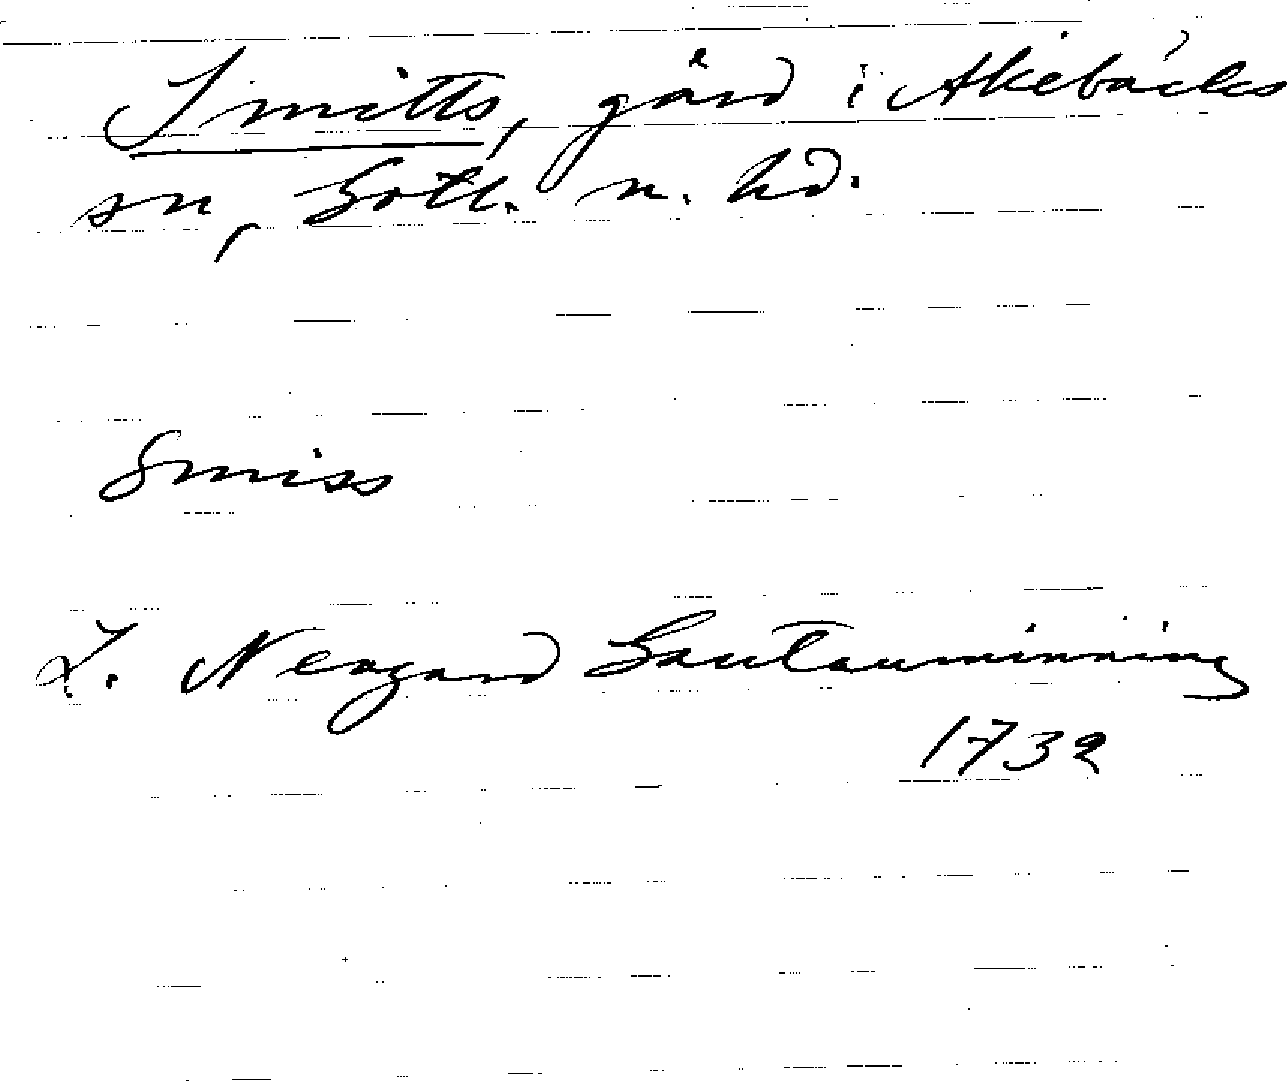 Smitts, gård i Akebäcks
sn, Gotl. n. hd.
Smiss
L. Neogard Gautauminning
1732